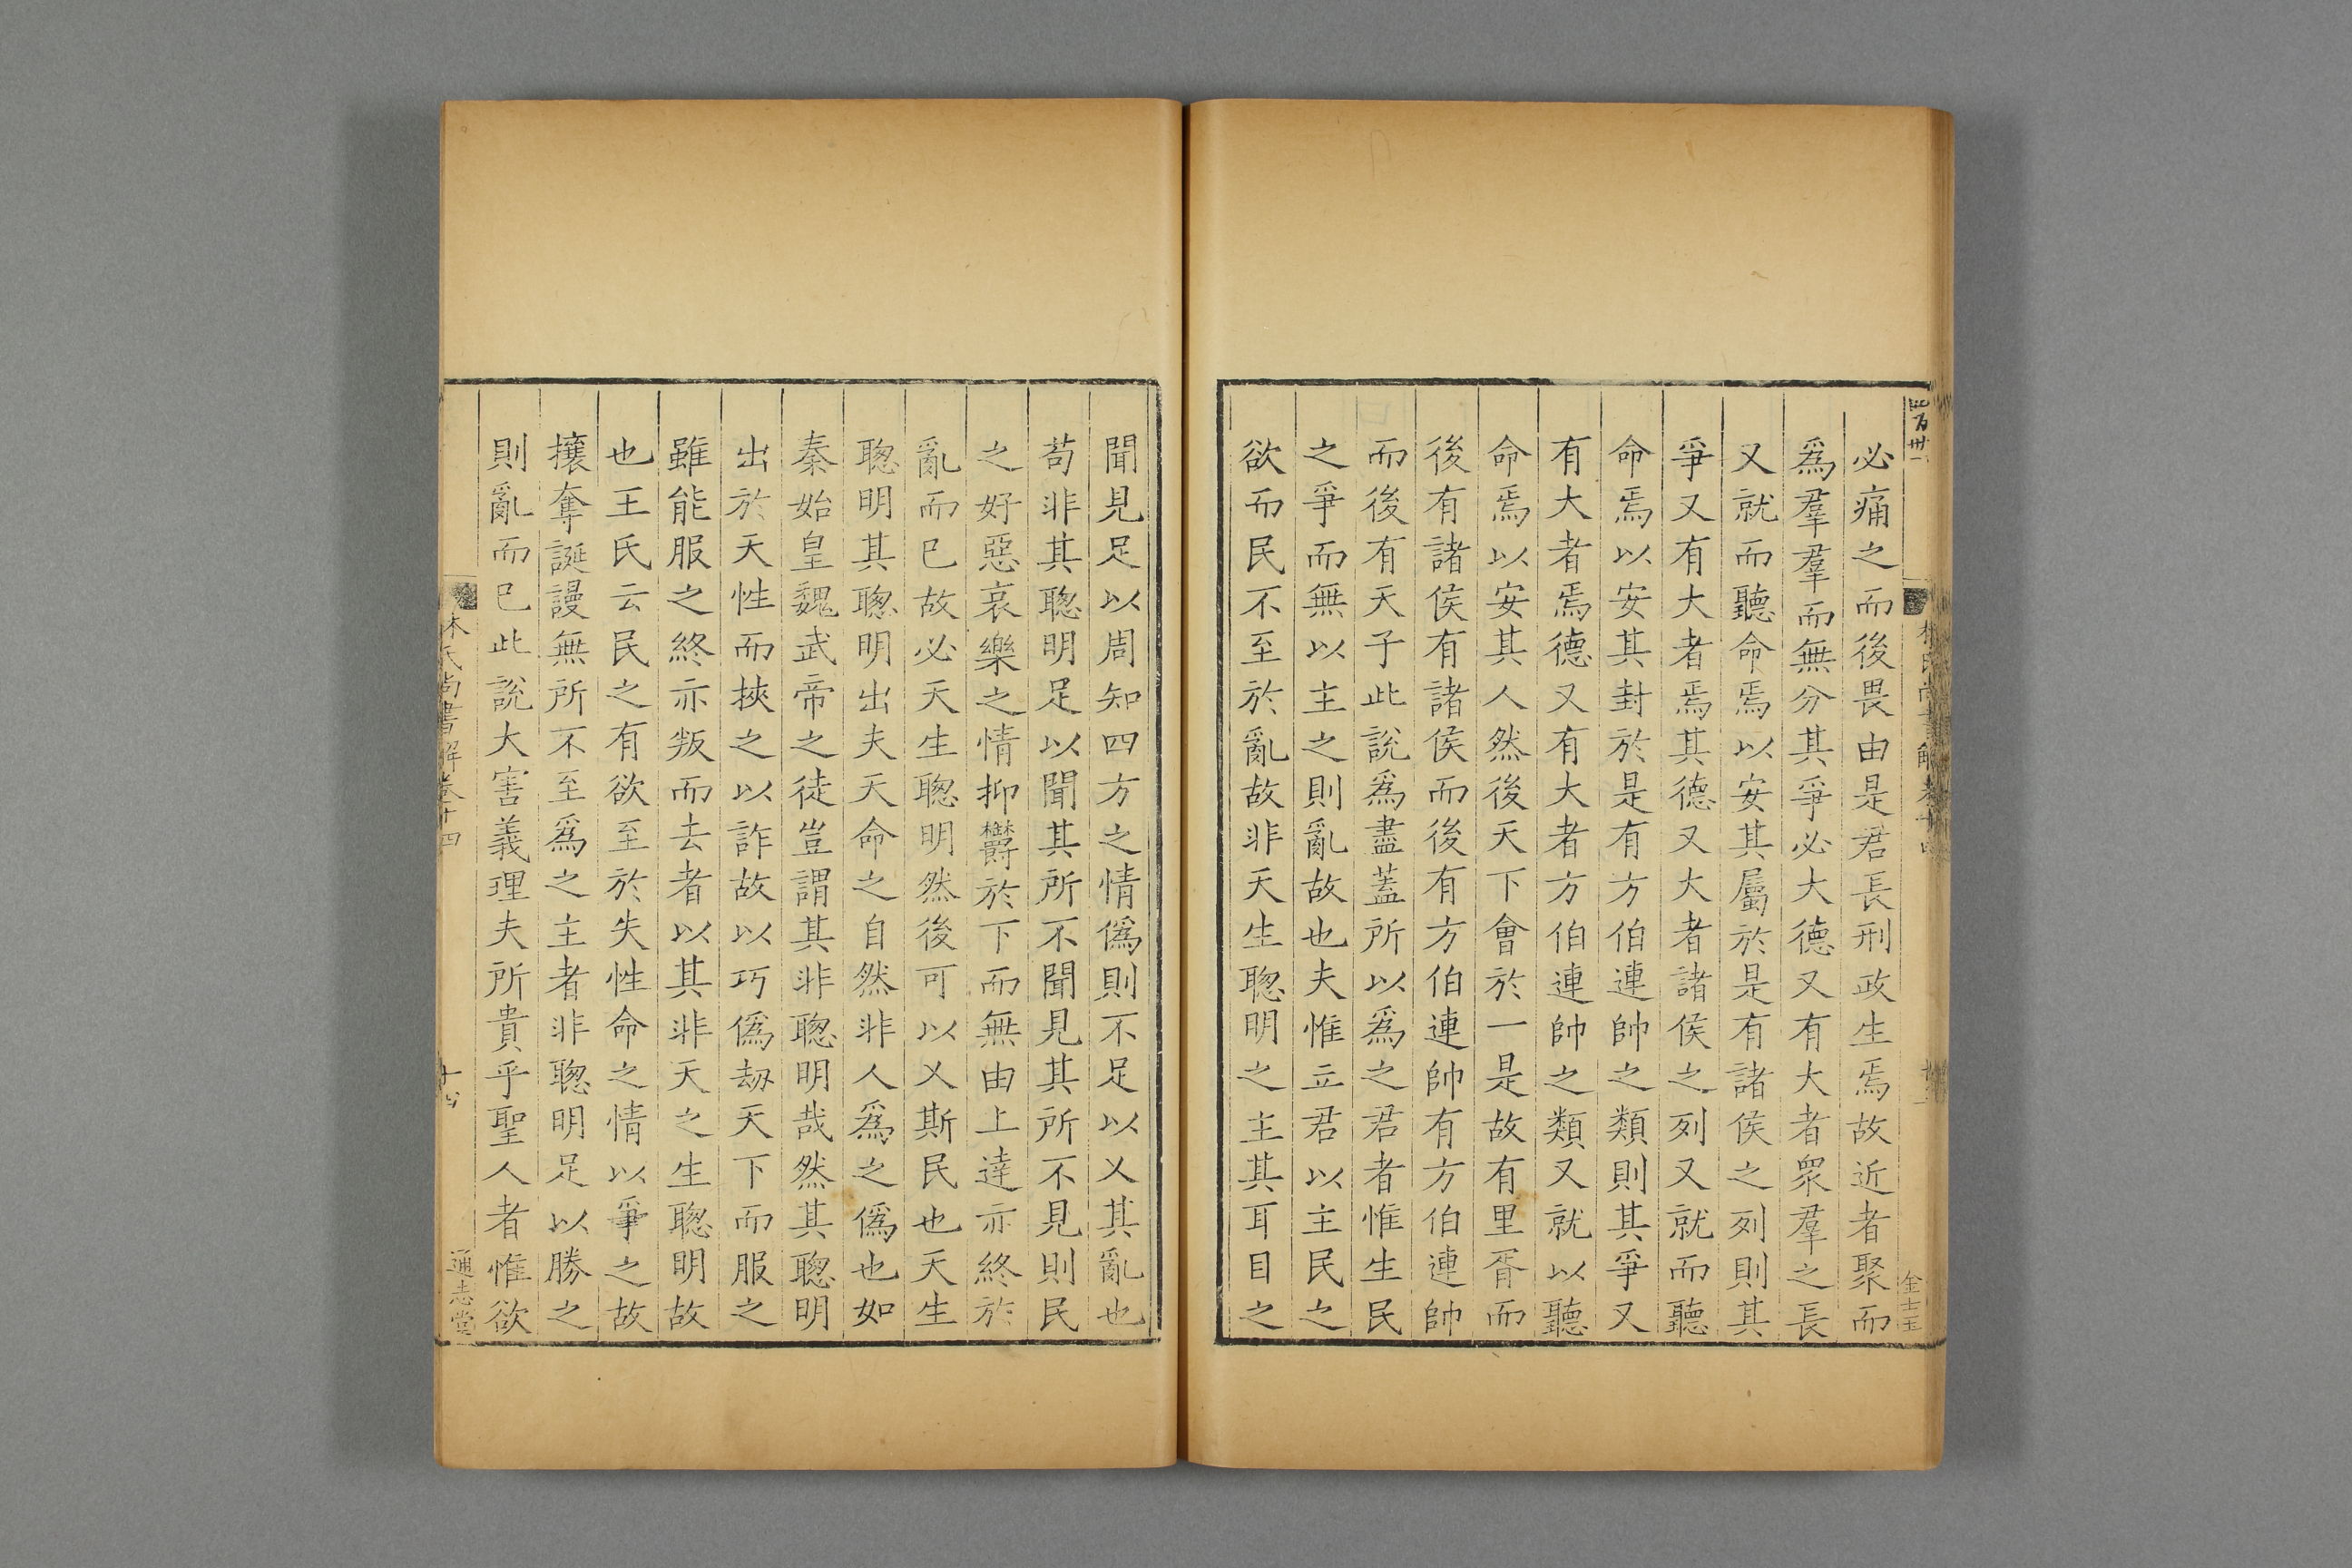 必痛之而後畏由是君長刑政生焉故近者聚而
爲羣羣而無分其爭必大德又有大者衆羣之長
又就而聽命焉以安其屬於是有諸侯之列則其
爭又有大者焉其德又大者諸侯之列又就而聽
命焉以安其封於是有方伯連帥之類則其爭又
有大者焉德又有大者方伯連帥之類又就以聽
命焉以安其人然後天下會於一是故有里胥而
後有諸侯有諸侯而後有方伯連帥有方伯連帥
而後有天子此說爲盡蓋所以爲之君者惟生民
之爭而無以主之則亂故也夫惟立君以主民之
欲而民不至於亂故非天生聰明之主其耳目之
金士玉
聞見足以周知四方之情僞則不足以乂其亂也
苟非其聰明足以聞其所不聞見其所不見則民
之好惡哀樂之情抑欝於下而無由上達亦終於
亂而已故必天生聰明然後可以乂斯民也天生
聰明其聰明出夫天命之自然非人爲之僞也如
秦始皇魏武帝之徒豈謂其非聰明哉然其聰明
出於天性而挾之以詐故以巧僞刼天下而服之
雖能服之終亦叛而去者以其非天之生聰明故
也王氏云民之有欲至於失性命之情以爭之故
攘奪誕謾無所不至爲之主者非聰明足以勝之
則亂而已此說大害義理夫所貴乎聖人者惟欲
林氏尚書解卷十四
通志堂